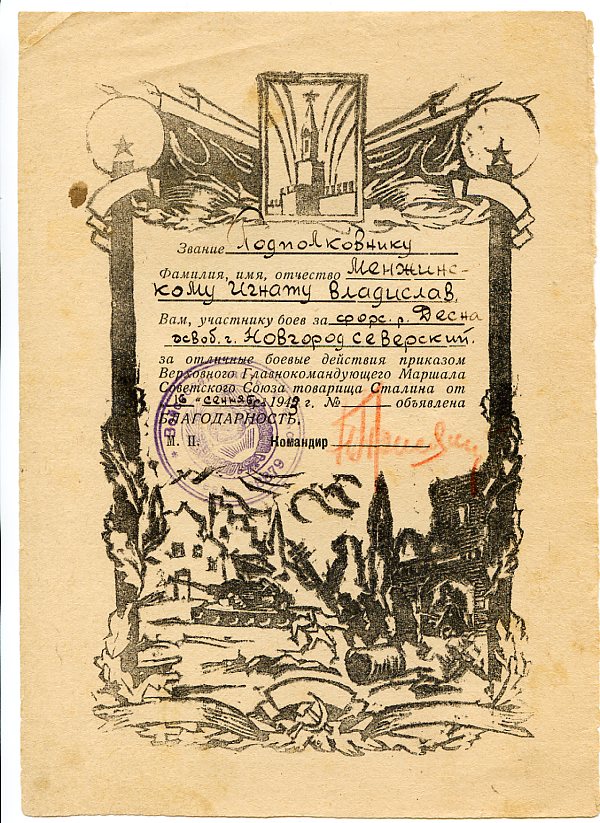 Звание Подполковнику
Фамилия, имя, отчество Менжинс-
кому Игнату Владислав.
Вам, участнику боев за форс. р. Десна
освоб. г. Новгород Северский.
за отличные боевые действия приказом
Верховного Главнокомандующего Маршала
Советского Союза товарища Сталина от
„16 „ сентября 1943 г. № объявлена
БЛАГОДАРНОСТЬ.
М. П. Командир